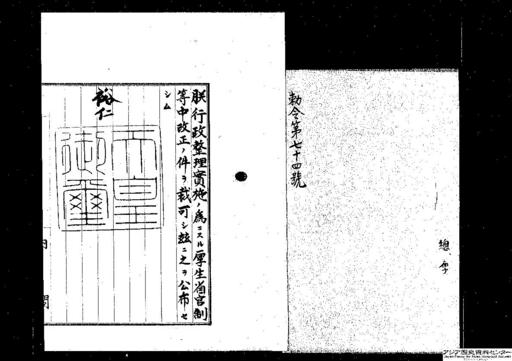 勅令第七十四號
總、厚
朕行政整理實施ノ爲ニスル厚生省官制
等中改正ノ件ヲ裁可シ玆ニ之ヲ公布セ
シム
裕仁
天皇
御璽
アジア歴史資料センター